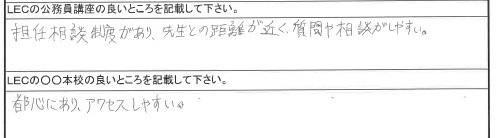 LECの公務員講座の良いところを記載して下さい。
担任相談制度があり、先生との距離が近く、質問や相談がしやすい。
LECの〇〇本校の良いところを記載して下さい。
都心にあり、アクセスしやすい。